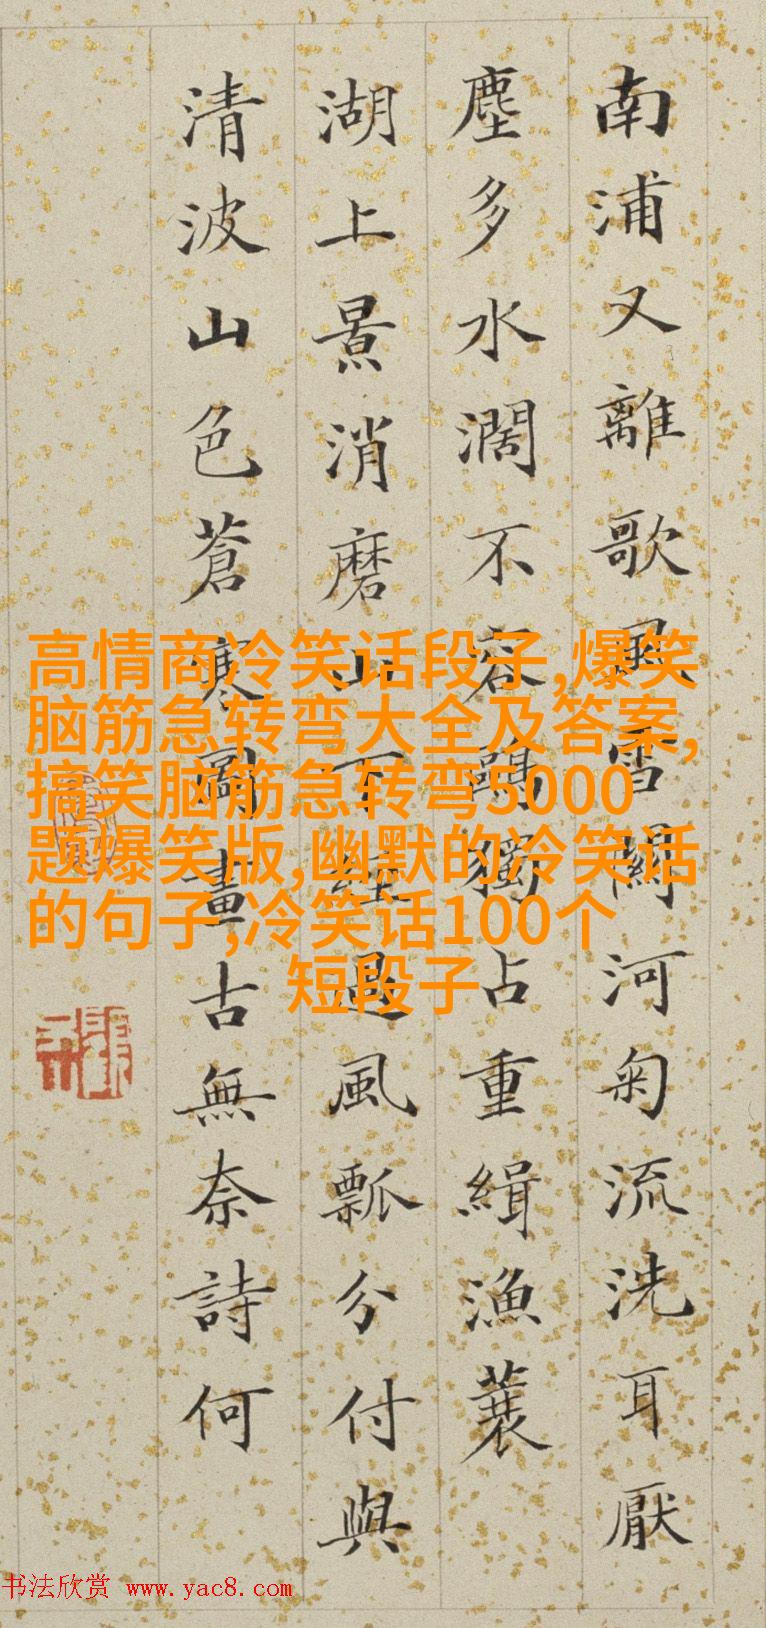 南浦又離歌雪關河匊流洗耳厭
塵多水濶不容鷗獨占重緝漁蓑
湖上景消磨山下經過風瓢分付與
清波山色蒼寒圖畫古無奈詩何
高情商冷笑话段子,爆笑
脑筋急转弯大全及答案,
搞笑脑筋急转弯5000
题爆笑版,幽默的冷笑话
的句子,冷笑话100个
短段子
书法欣赏 www.yac8.com